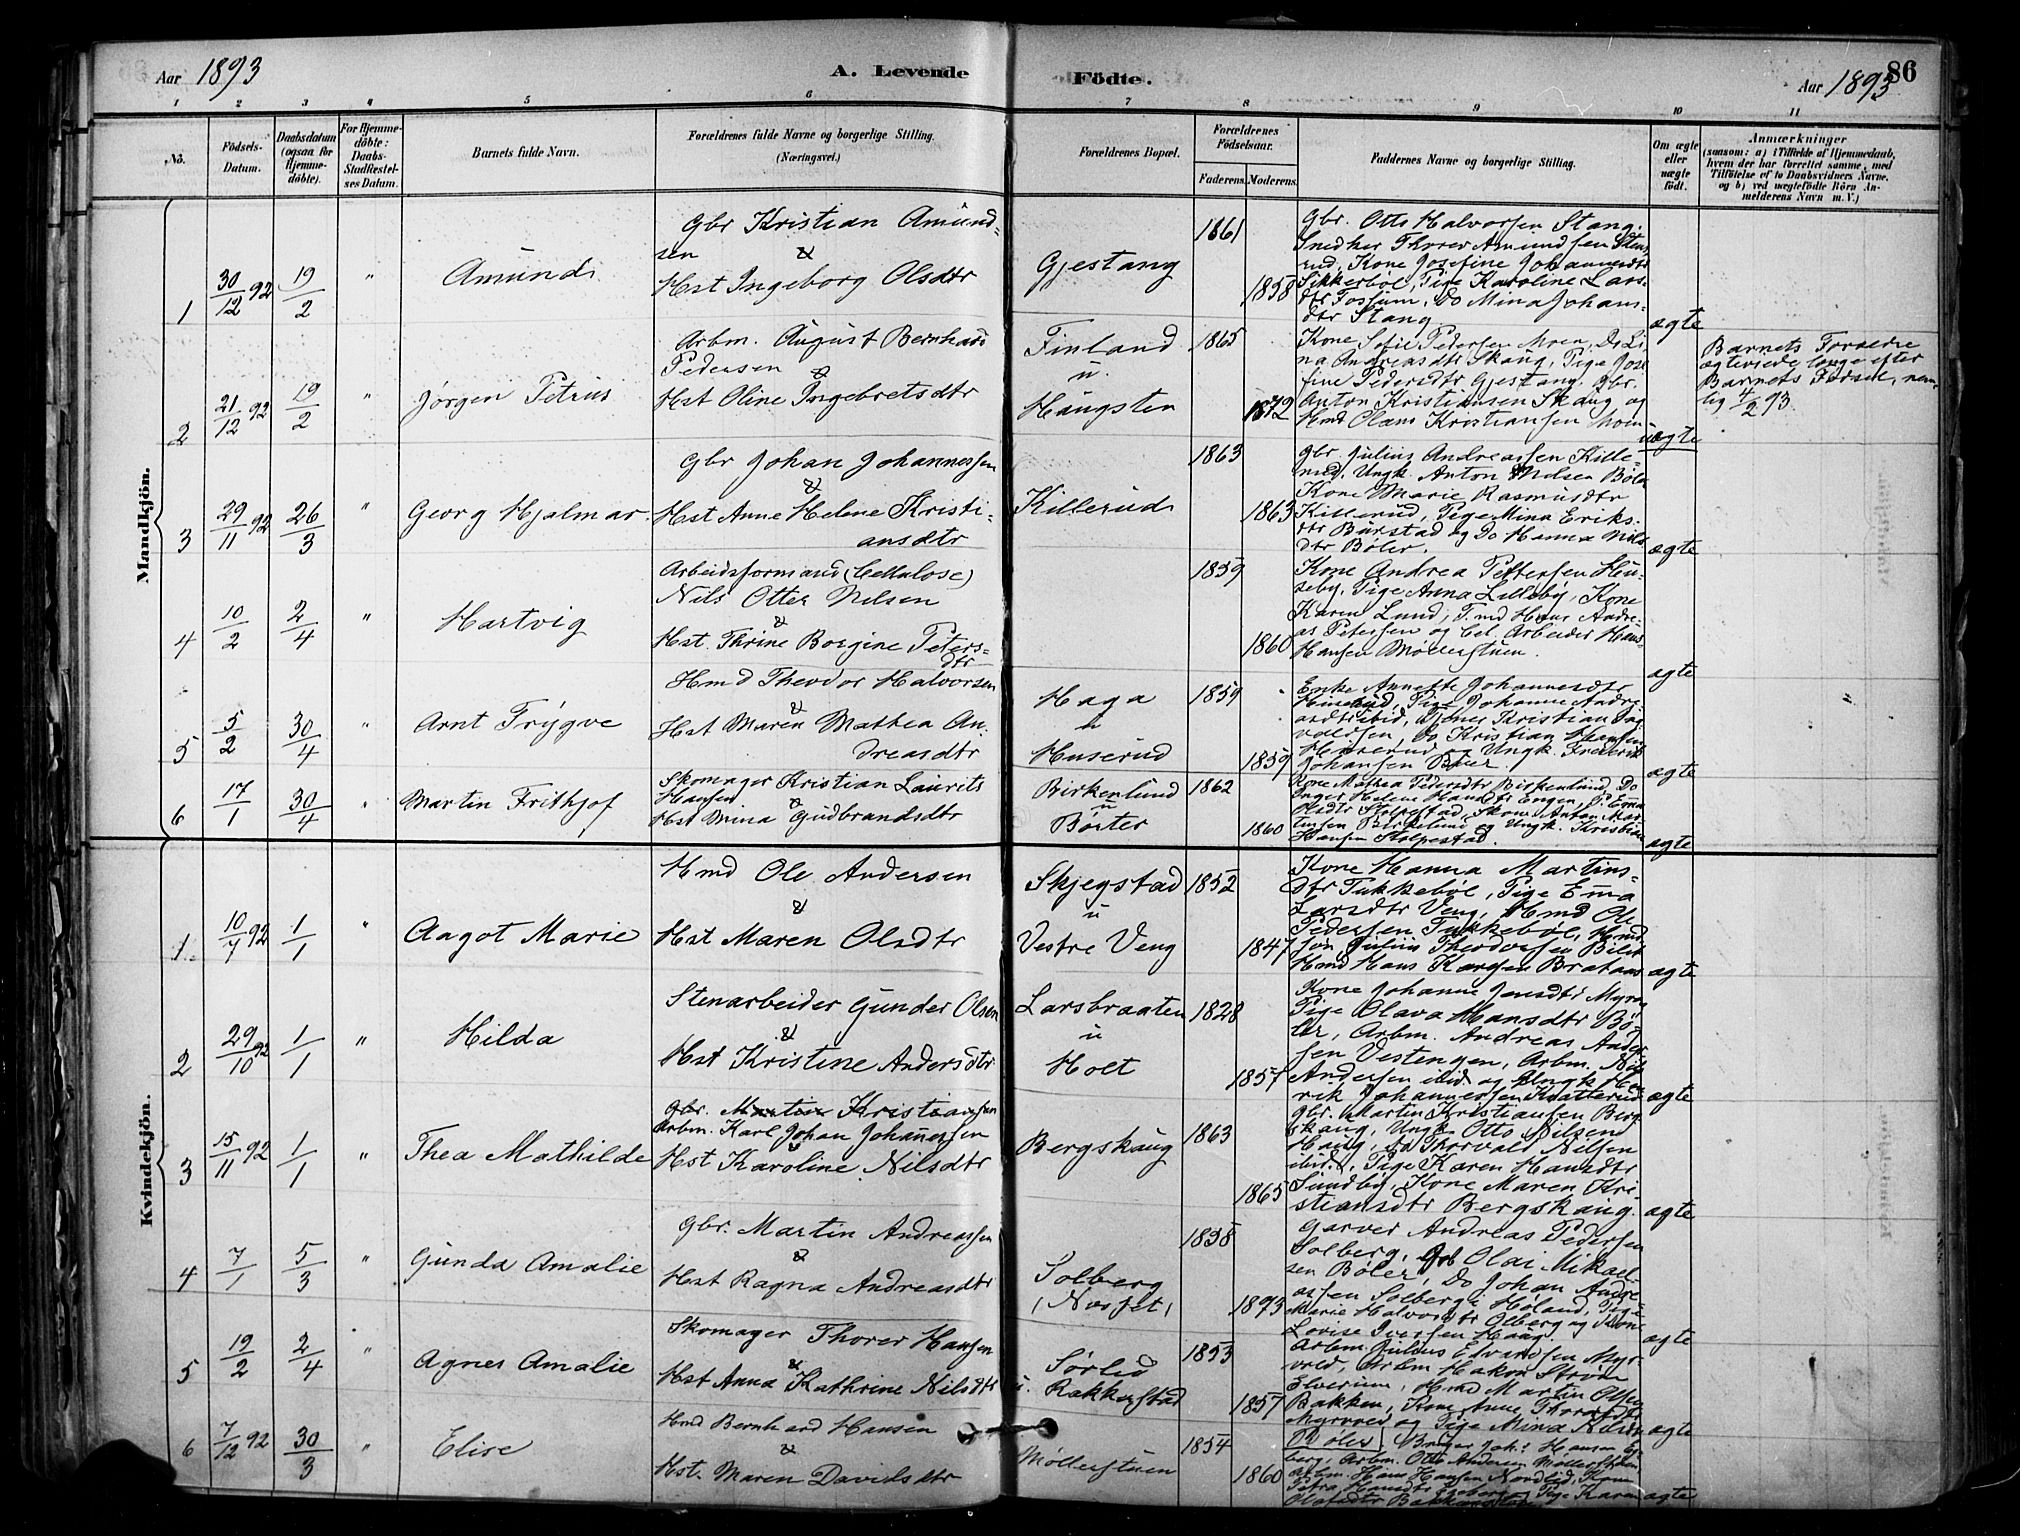 Aar 1893
A. Levende Fødte.
Aar 1893
86
1 2 3 4 5 6 7 8 9 10 11
No.
Fødsels-Datum.
Daabsdatum (ogsaa for Hjemme-døbte).
For Hjemme-døbte: Daabs-Stadfæstel-ses Datum.
Barnets fulde Navn.
Forældrenes fulde Navne og borgerlige Stilling.
(Næringsvei.)
Forældrenes Bopæl.
Forældrenes Fødselsaar.
Faderens. Moderens.
Faddernes Navne og borgerlige Stilling.
Om ægte eller uægte født.
Anmærkninger
(saasom: a) i Tilfælde af Hjemmedaab,
hvem der har forrettet samme, med
Tilføielse af to Daabsvidners Navne,
og b) ved uægtefødte Børn An-
melderens Navn m.V.)
Mandkjøn.
1 30/12 92 19/2 " Amund
Gbr Kristian Amund-
sen &
Hst Ingeborg Olsdtr
Gjestang
1861
1858
Gbr. Otto Halvorsen Stang.
Snedker Thorer Amundsen
Kone Josefine Johannesdtr
Sikkerbøl, Pige Karoline Lars-
dtr Fossum, Do Mina Johans-
dtr Stang
ægte
2 21/12 92 19/2 " Jørgen Petrus
Arbm. August Bernhard
Pedersen &
Hst Oline Ingebretsdtr
Finland
u.
Haugsten
1865
1872
Kone Sofie Pedersen Moen, Do Li-
na Andreasdtr Skaug, Pige Jose-
fine Pedersdtr Gjestang. Gbr.
Anton Kristiansen Skaug og
Hmd Olaus Kristiansen
uægte
Barnets Forældre
ægteviede længe efter
Barnets Fødsel, nem-
lig 4/2 93.
3 29/11 92 26/3 " Georg Hjalmar
Gbr Johan Johannessen
&
Hst Anne Helene Kristi-
ansdtr
Killerud
1863
1863
Gbr. Julius Andreassen Kille-
rud. Ungk. Anton Nilsen Bøler
Kone Marie Rasmusdtr
Killerud, Pige Mina Eriks-
dtr Burstad og Do Hanna Nils-
dtr Bøler.
ægte
4 10/2 2/4 " Hartvig
Arbeidsformand (Cellulose)
Nils Otter Nilsen
&
Hst. Thrine Borgine Peters-
dtr
1859
1860
Kone Andrea Pettersen Hu-
seby, Pige Anna Lilleby, Kone
Karen Lund, T.md Hans Andre-
as Petersen og Cel. Arbeider Hans
Hansen Møllerstuen.
ægte
5 5/2 30/4 " Arnt Trygve
Hmd Theodor Halvorsen
&
Hst Maren Mathea An-
dreasdtr
Haga
u
Huserud
1859
1859
Enke Annette Johannesdtr
Huserud, Pige Johanne Andre-
asdtr ibid, Kristian
Do Kristian Hansen
og Ungk. Frederik
Johansen
ægte
6 17/1 30/4 " Martin Frithjof
Skomager Kristian Laurits
Hansen &
Hst Mina Gudbrandsdtr
Birkenlund
u
Børter
1862
1860
Kone Mathea Pedersdtr Birkenlund, Do
Inger Helene Hansdtr Engen, P. Emma
Olsdtr Stolpestad, Skom. Anton Mar-
tinsen Birkelund og Ungk. Kristian
Hansen Stolpestad.
ægte
Kvindekjøn.
1 10/7 92 1/1 " Aagot Marie
Hmd Ole Andersen
&
Hst Maren Olsdtr
Skjegstad
u
Vestre Veng
1852
1847
Kone Hanna Martins-
dtr Tukkebøl, Pige Emma
Larsdtr Veng, Hmd Ole
Pedersen Tukkebøl, Hmd
Julius Theodorsen
Hmd Hans Brataas
ægte
2 29/10 92 1/1 " Hilda
Stenarbeider Gunder Olsen
&
Hst Kristine Andersdtr
Larsbraaten
u
Holt
1828
1857
Kone Johanne Jensdtr
Pige Olava Hansdtr Bø-
ler, Arbm. Andreas Ander-
sen Vestengen, Arbm. Nils
Andersen ibid og Ungk Hen-
rik Johannessen Knatterud
ægte
3 15/11 92 1/1 " Thea Mathilde
Gbr. Martin Kristiansen
Arbm. Karl Johan Johannessen
Hst Karoline Nilsdtr
Bergskaug
1863
1865
Gbr. Martin Kristiansen Berg-
skaug, Ungk Otto Nilsen
Haug, Do Thorvald Nilsen
ibid, Pige Karen Hansdtr
Sundby, Kone Maren Kri-
stiansdtr Bergskaug.
ægte
4 7/1 5/3 " Gunda Amalie
Gbr. Martin Andreassen
&
Hst Ragna Andreasdtr
Solberg
(Nosset)
1838
1893
Garver Andreas Pedersen
Solberg, Gbr Olai Mikael-
sen Bøler, Do Johan Andre-
assen Solberg i Høland, Pige
Marie Halvorsdtr Olberg og Kone
Lovise Iversen Haug.
ægte
5 19/2 2/4 " Agnes Amalie
Skomager Thorer Hansen
&
Hst Anna Kathrine Nilsdtr
Sørlid
u. Rakkestad
1853
1857
Arbm. Julius Edvardsen Myr-
vold, Arbm Hakon Strøm
Elverum, Hmd Martin Olsen
Bakken, Kone Anne
Myrvold og Pige Mina Nilsen
Bøler
ægte
6 7/12 92 30/3 " Elise
Hmd Bernhard Hansen
&
Hst. Maren Davidsdtr
Møllerstuen
1854
1860
Bruger Joh. Hansen
berg, Arbm. Otto Andersen Møllerstuen,
Arbm. Hans Hansen Nordlid, Kone
Petra Hansdtr og Pige Karen
Olafsdtr
ægte